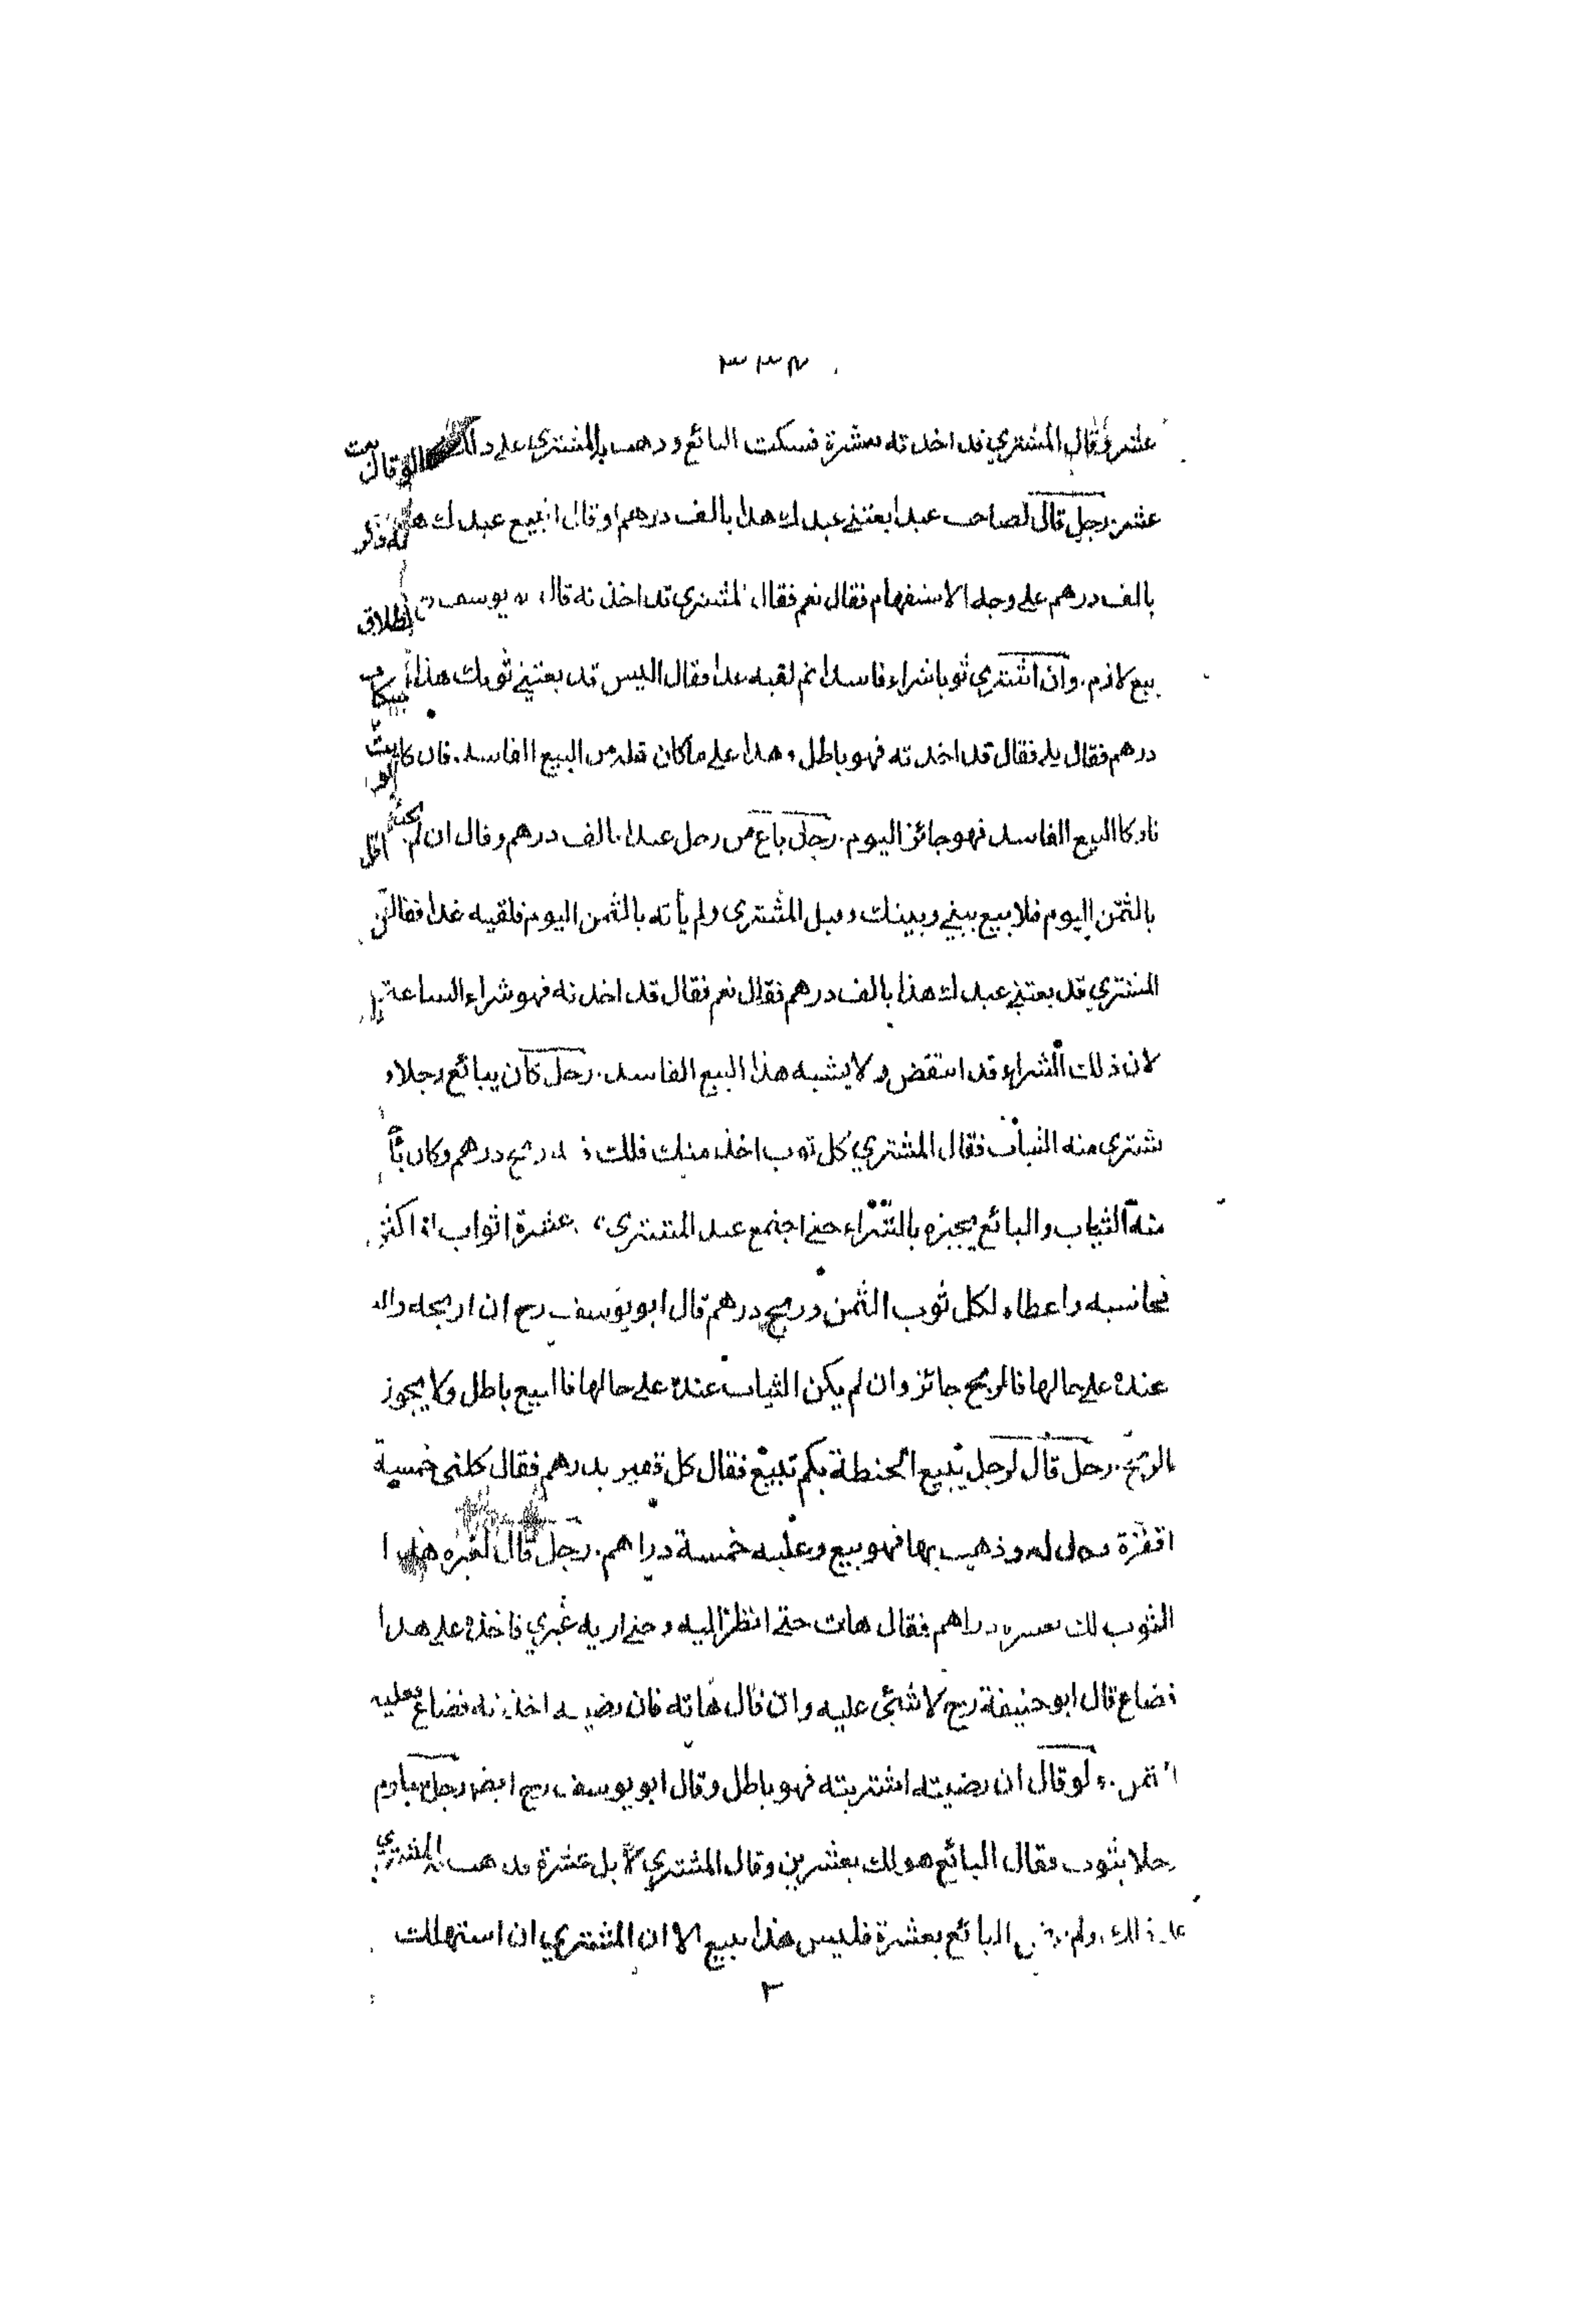 ٣٣٢
عشر وقال المشتري قد اخذته بعشرة فسكت البائع وذهب بالمشتري على ذلك
عشر. رجل قال لصاحب عبد ابعتني عبدك هذا بالف درهم او قال اتبيع عبدك هذا
بالف درهم على وجه الاستفهام فقال نعم فقال المشتري قد اخذته قال يوسف
بيع لازم. وان اشترى ثوبا شراء فاسدا ثم لقيه غدا فقال اليس قد بعتني ثوبك هذا
درهم فقال بلى فقال قد اخذته فهو باطل وهذا على ما كان قبله من البيع الفاسد. فان كانا
تاركا البيع الفاسد فهو جائز اليوم. رجل باع من رجل عبدا بالف درهم وقال ان لم
بالثمن اليوم فلا بيع بيني وبينك وقبل المشتري ولم يأته بالثمن اليوم فلقيه غدا فقال
المشتري قد بعتني عبدك هذا بالف درهم فقال نعم فقال قد اخذته فهو شراء الساعة
لان ذلك الشراء قد انتقض ولا يشبه هذا البيع الفاسد. رجل كان يبائع رجلا و
شترى منه الثياب فقال المشتري كل ثوب اخذ منك فلك ربح درهم وكان
منه الثياب والبائع يجيزه بالشراء حتى اجتمع عند المشتري عشرة اثواب او اكثر
فحاسبه واعطاه لكل ثوب الثمن وربح درهم قال ابو يوسف رح ان اربحه وال
عنده على حالها فالربح جائز وان لم يكن الثياب عنده على حالها فالبيع باطل ولا يجوز
الربح. رجل قال لرجل يبيع الحنطة بكم تبيع فقال كل قفيز بدرهم فقال كلني خمسة
اقفزة فكال له وذهب بها فهو بيع وعليه خمسة دراهم. رجل قال لغيره هذا
الثوب لك بعشرة دراهم فقال هات حتى انظر اليه وحتى اريه غيري فاخذه على هذا
فضاع قال ابو حنيفة رح لا شئ عليه وان قال هاته فان رضيته اخذته فضاع فعليه
الثمن. ولو قال ان رضيته اشتريته فهو باطل وقال ابو يوسف رح ايضا رجل ساوم
رجلا بثوب فقال البائع هو لك بعشرين وقال المشتري لا بل عشرة فذهب به المشتري
على ذلك ولم يرض البائع بعشرة فليس هذا ببيع الا ان المشتري ان استهلك
٢